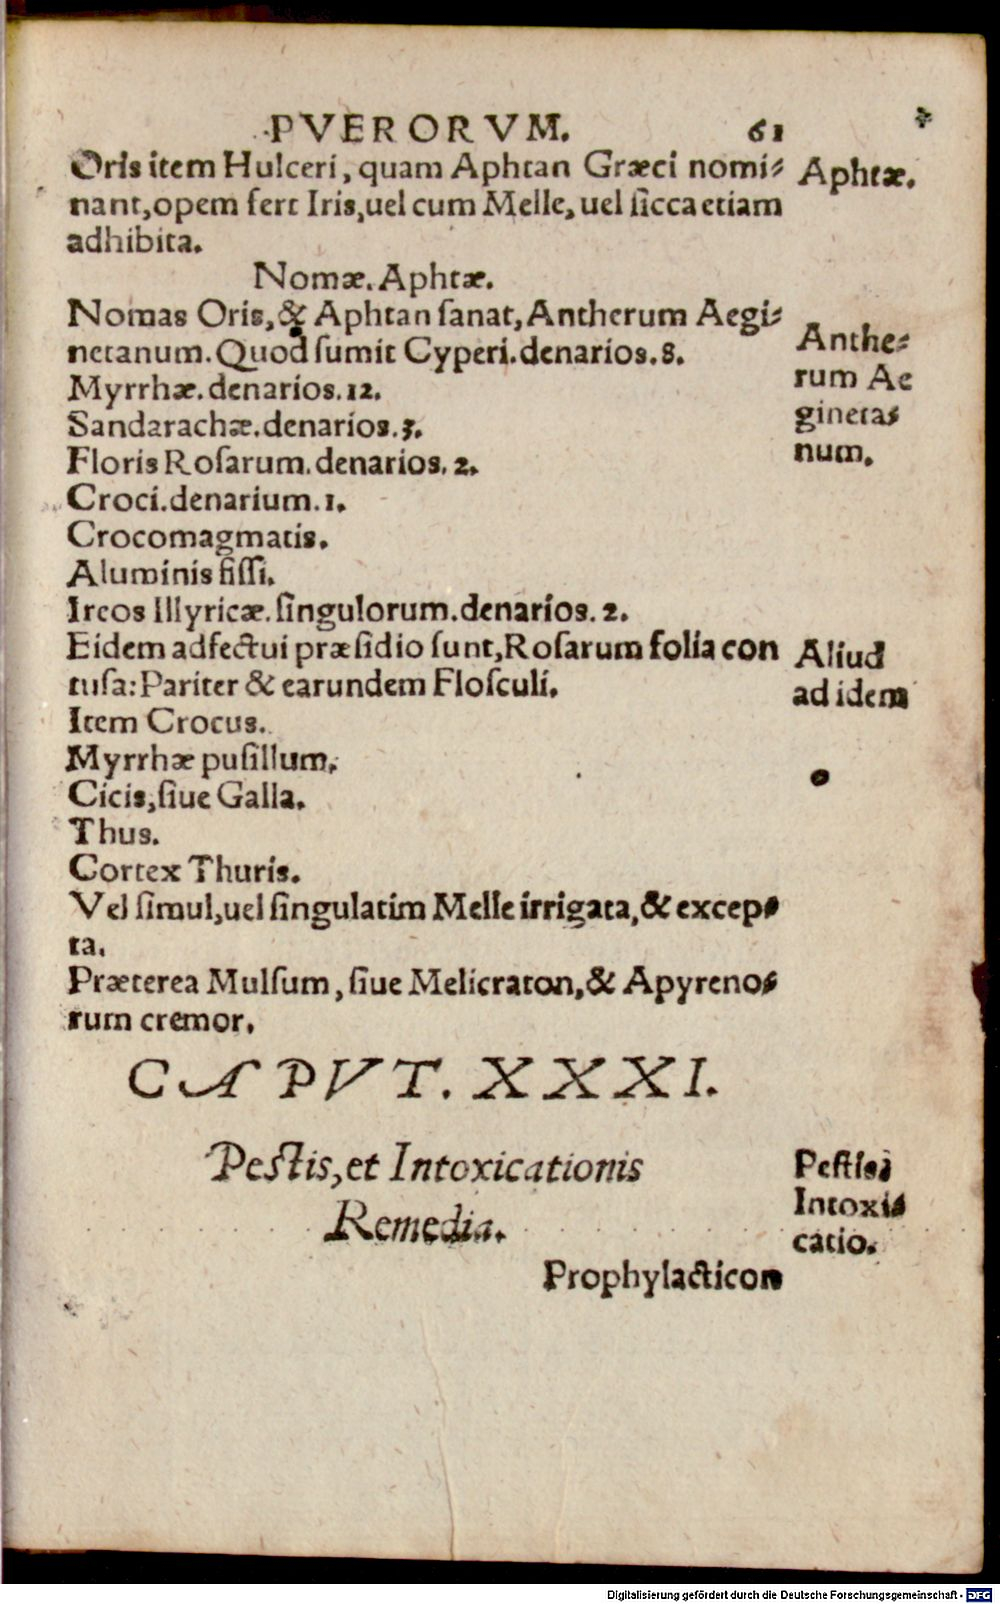 PVERORVM. 61
Oris item Hulceri, quam Aphtan Græci nomi-
nant, opem fert Iris, uel cum Melle, uel sicca etiam
adhibita.
Aphtæ.
Nomæ. Aphtæ.
Nomas Oris, & Aphtan sanat, Antherum Aegi-
netanum. Quod sumit Cyperi. denarios. 8.
Myrrhæ. denarios. 12.
Sandarachæ. denarios. 3.
Floris Rosarum. denarios. 2.
Croci. denarium. 1.
Crocomagmatis.
Aluminis fissi.
Ireos Illyricæ. singulorum. denarios. 2.
Anthe-
rum Ae
gineta-
num.
Eidem adfectui præsidio sunt, Rosarum folia con
tusa: Pariter & earundem Flosculi.
Item Crocus.
Myrrhæ pusillum.
Cicis, siue Galla.
Thus.
Cortex Thuris.
Vel simul, uel singulatim Melle irrigata, & excep-
ta.
Præterea Mulsum, siue Melicraton, & Apyreno-
rum cremor.
Aliud
ad idem
CAPVT. XXXI.
Pestis, et Intoxicationis
Remedia.
Pestis;
Intoxi-
catio.
Prophylacticon
Digitalisierung gefördert durch die Deutsche Forschungsgemeinschaft - DFG